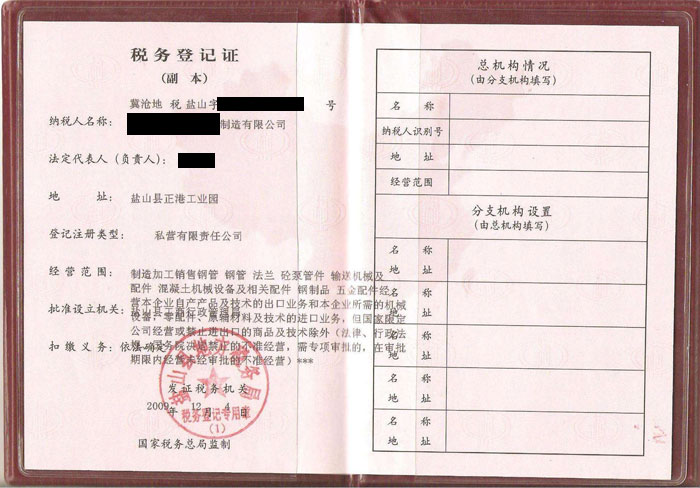 税务登记证
(副 本)
冀沧地 税 盐山字 号
纳税人名称: 制造有限公司
法定代表人(负责人):
地 址: 盐山县正港工业园
登记注册类型: 私营有限责任公司
经营范围: 制造加工销售钢管 钢管 法兰 砼泵管件 输送机械及
配件 混凝土机械设备及相关配件 钢制品 五金配件经
营本企业自产产品及技术的出口业务和本企业所需的机械
批准设立机关: 盐山县工商行政管理局
设备、零配件、原辅材料及技术的进口业务,但国家限定
公司经营或禁止进出口的商品及技术除外(法律、行政法
扣缴义务: 依法确定
规、国务院决定禁止的不准经营,需专项审批的,在审批
期限内经营未经审批的不准经营)***
盐山县地方税务局
税务登记专用章
(1)
发证税务机关
2009年 12月 4日
国家税务总局监制
总机构情况
(由分支机构填写)
名 称
纳税人识别号
地 址
经营范围
分支机构设置
(由总机构填写)
名 称
地 址
名 称
地 址
名 称
地 址
名 称
地 址
名 称
地 址